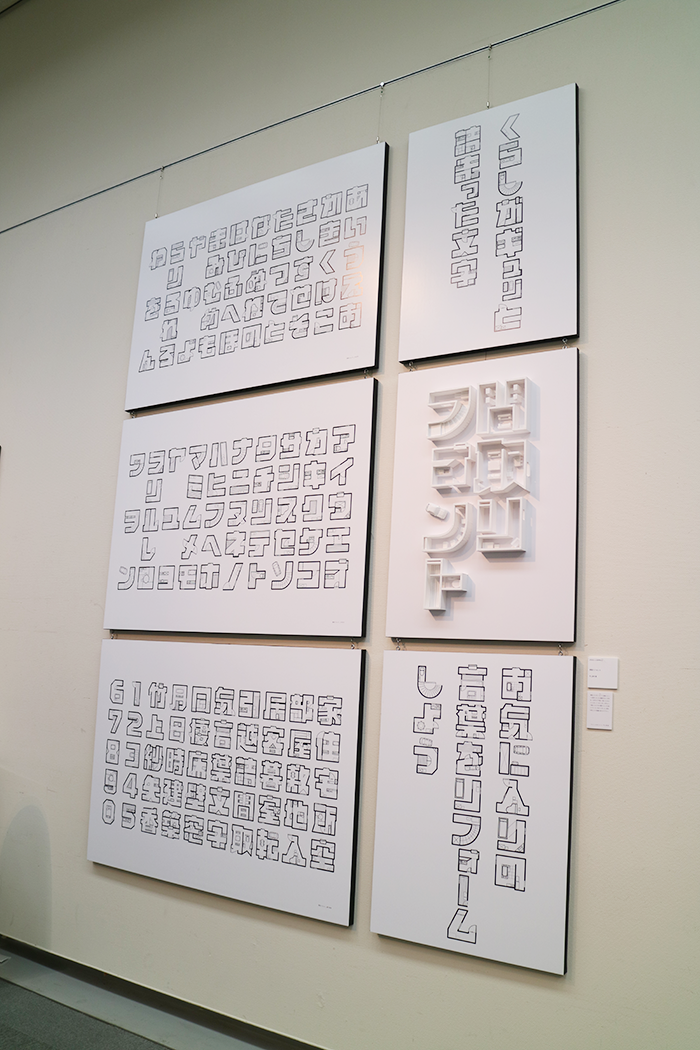 くらしがギュッと
詰まった文字
間取リ
フォント
お気に入りの
言葉をリフォーム
しよう
あいうえお
かきくけこ
さしすせそ
たちつてと
なにぬねの
はひふへほ
まみむめも
やゆよ
らりるれろ
わをん
アイウエオ
カキクケコ
サシスセソ
タチツテト
ナニヌネノ
ハヒフヘホ
マミムメモ
ヤユヨ
ラリルレロ
ワヲン
家住宅所空
部屋敷地入
居客暮室転
引越詰間取
気言葉文字
床壁窓
月日時建築
上秒生
12345
67890